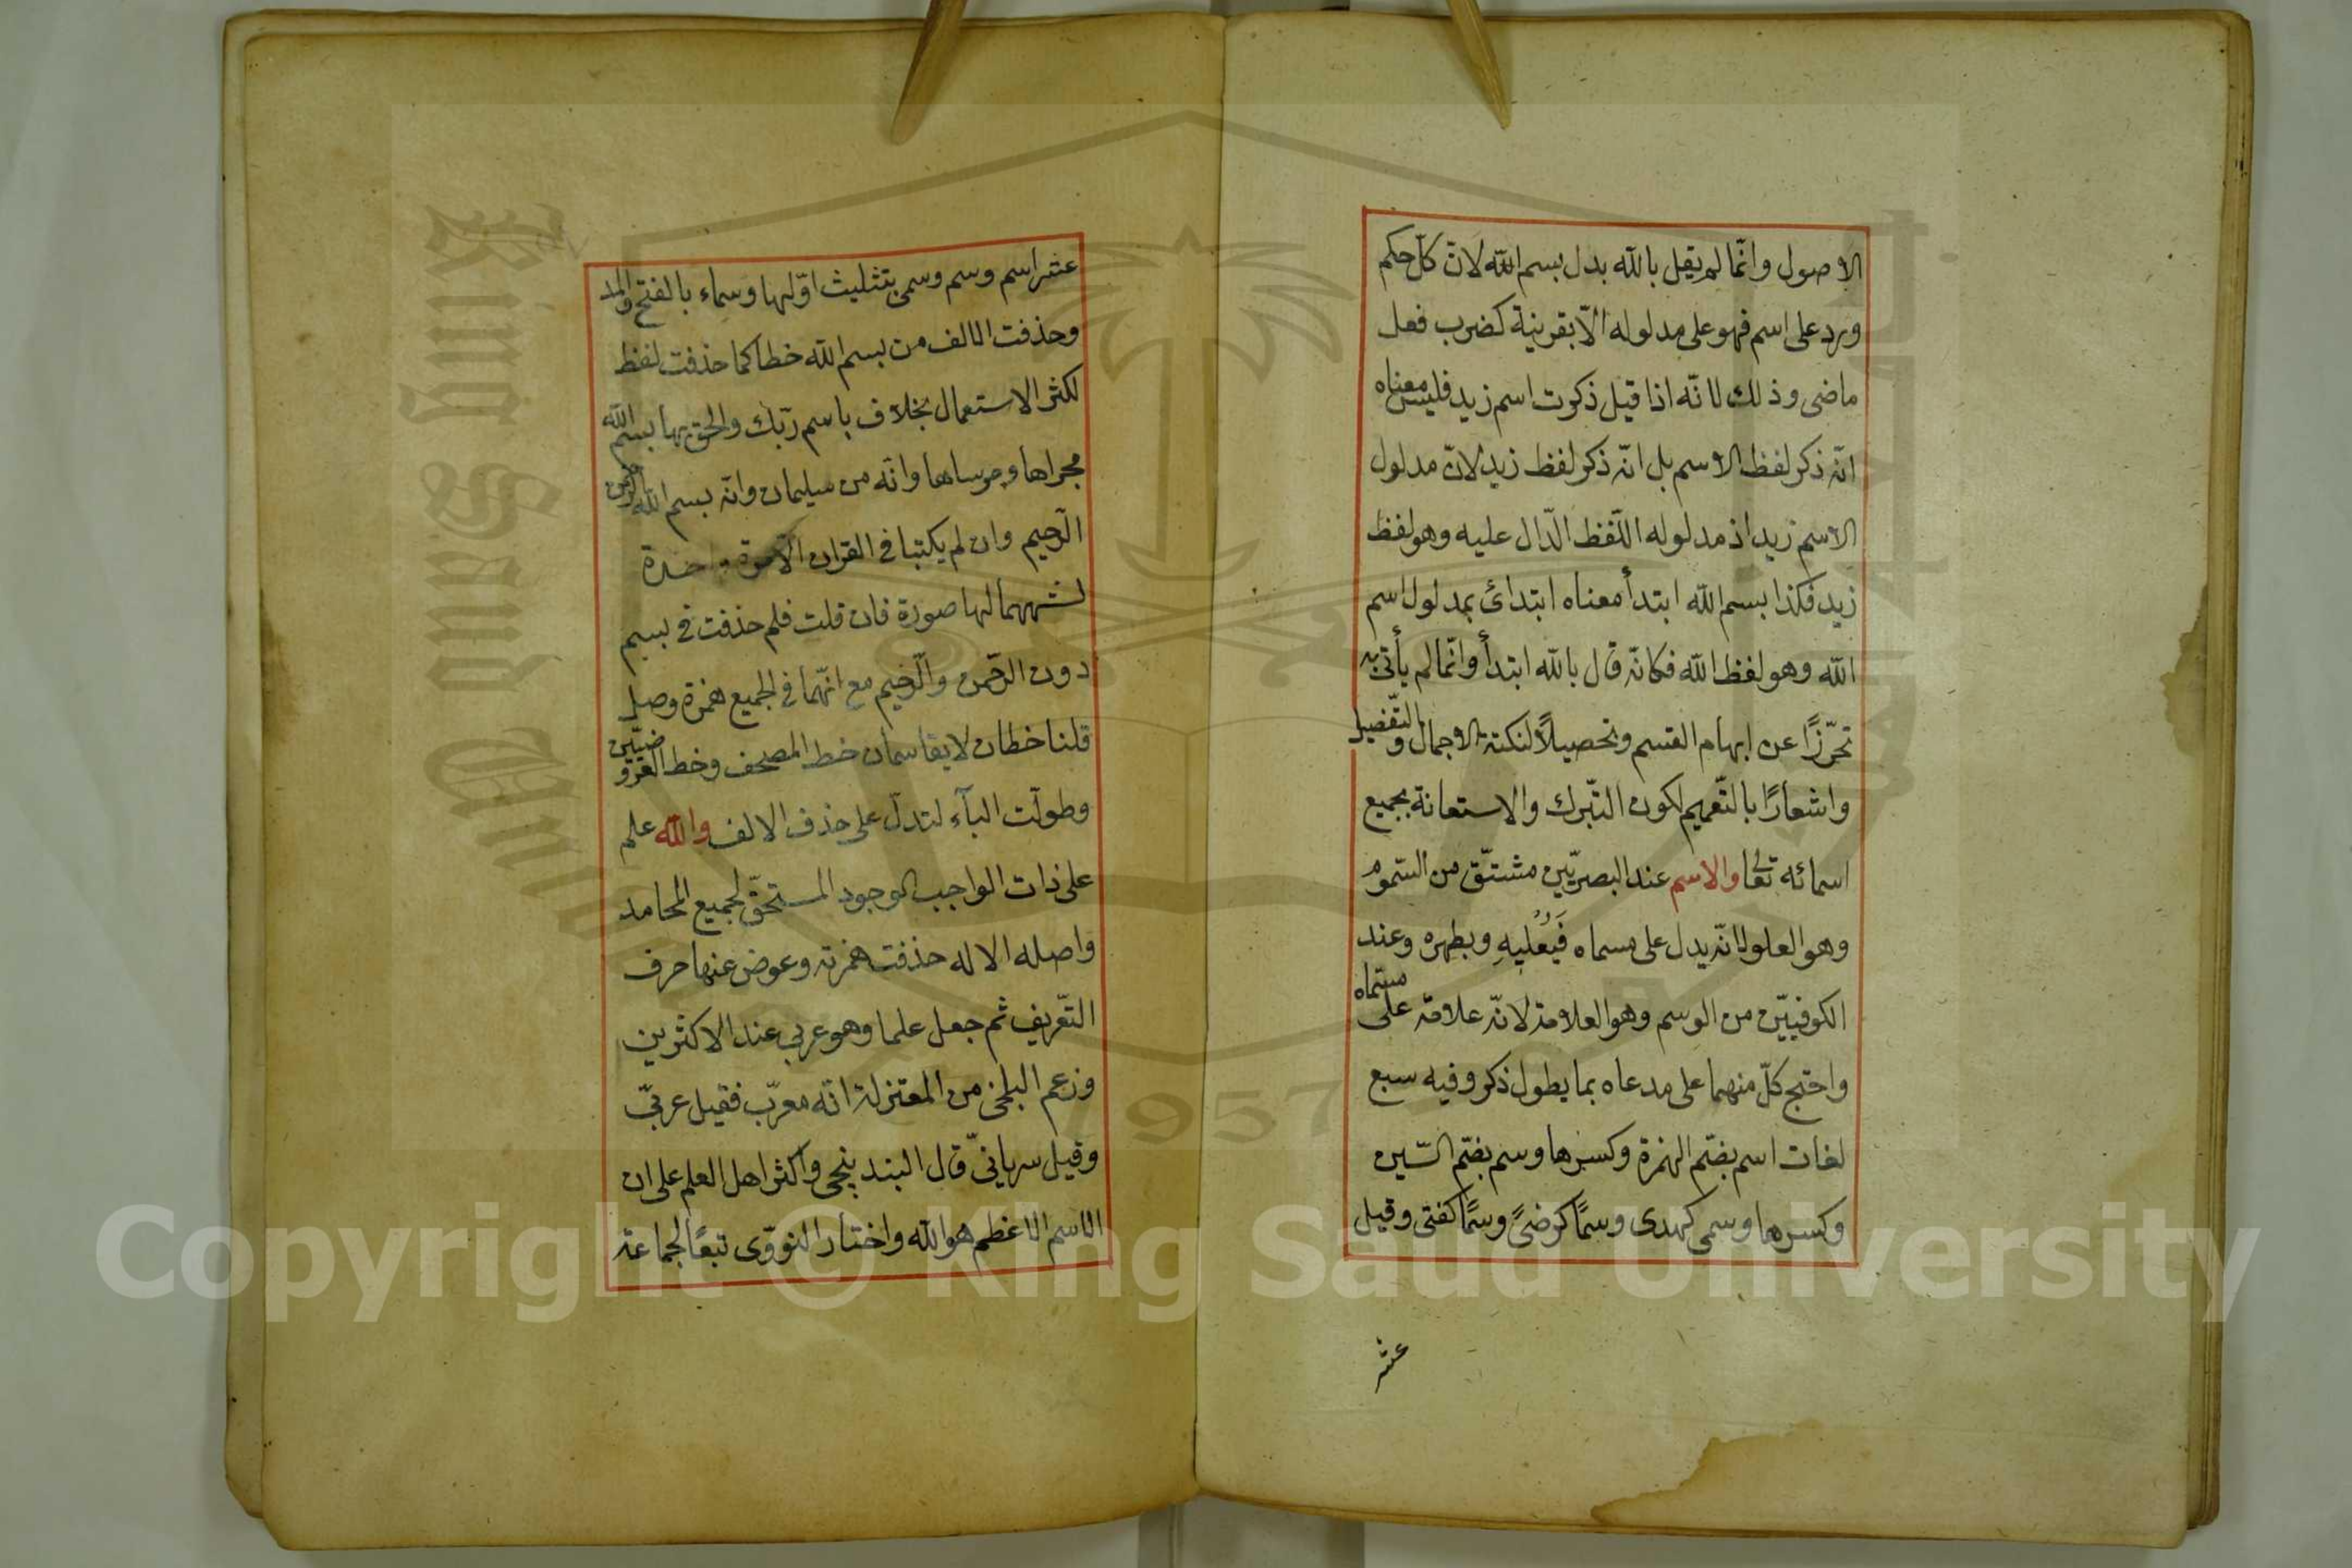 الاصول وانّما لم يقل بالله بدل بسم الله لانّ كلّ حكم
ورد على اسم فهو على مدلوله الّا بقرينة كضرب فعل
ماضى وذلك لانّه اذا قيل ذكرت اسم زيد فليس معناه
انّه ذكر لفظ الاسم بل انّه ذكر لفظ زيد لانّ مدلول
الاسم زيد اذ مدلوله اللّفظ الدّال عليه وهو لفظ
زيد فكذا بسم الله ابتدأ معناه ابتدائ بمدلول اسم
الله وهو لفظ الله فكانّه قال بالله ابتدأ وانّما لم يأتى به
تحرّزًا عن ابهام القسم وتحصيلاً لنكتة الاجمال والتّفضيل
واشعارًا بالتّعميم لكون التّبرك والاستعانة بجميع
اسمائه تعالى والاسم عند البصريّين مشتّق من السّمو
وهو العلو لانّه يدل على مسماه فَيُعُليهِ ويظهره وعند
الكوفييّن من الوسم وهو العلامة لانّه علامة على مسّماه
واحتج كلّ منهما على مدعاه بما يطول ذكر وفيه سبع
لغات اسم بضّم الهمزة وكسرها وسم بضّم السّين
وكسرها وسمى كهدى وسمًا كرضىً وسمًا كفتى وقيل
عشر
عشر اسم وسم وسمى بتثليث اوّلها وسماء بالفتح والمد
وحذفت الالف من بسم الله خطا كما حذفت لفظ
لكثر الاستعمال بخلاف باسم ربّك والحق بها بسم الله
مجراها ومرساها وانّه من سليمان وانّه بسم الله الرّحمن
الرّحيم وان لم يكتبا فى القران الّا مرة واحدة
لشبههما لها صورة فان قلت فلم حذفت فى بسم
دون الرّحمن والرّحيم مع انّهما فى الجميع همزة وصل
قلنا خطان لا يقاسان خط المصحف وخط العروضييّن
وطولّت البآء لتدلّ على حذف الالف والله علم
على ذات الواجب الوجود المستحقّ لجميع المحامد
واصله الاله حذفت همزته وعوض عنها حرف
التّعريف ثم جعل علما وهو عربى عند الاكثرين
وزعم البلخى من المعتزلة انّه معرّب فقيل عربىّ
وقيل سريانىّ قال البندينجى واكثر اهل العلم على ان
الاسم الاعظم هو الله واختار النووّى تبعًا لجماعة
Copyright © King Saud University
King Saud University
1957